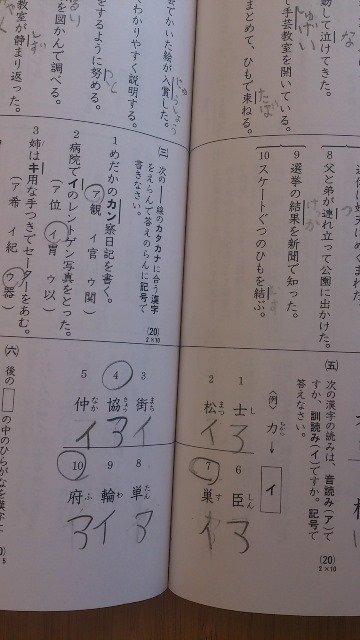 功して泣けてきた。
な
て手芸教室を開いている。
しゅげい
まとめて、ひもで束ねる。
たば
8 父と弟が連れ立って公園に出かけた。
9 選挙の結果を新聞で知った。
けっか
10 スケートぐつのひもを結ぶ。
むす
(五) 次の漢字の読みは、音読み(ア)ですか、訓読み(イ)ですか。記号で答えなさい。
(20) 2×10
〈例〉 力 ちから → イ
1 士 し ア
2 松 まつ イ
6 臣 しん ア
7 巣 す イ
会でかいた絵が入賞した。
にゅうしょう
わかりやすく説明する。
をするように努める。
つと
を図かんで調べる。
教室が静まり返った。
しず
(三) 次の――線のカタカナに合う漢字をえらんで答えのらんに記号で書きなさい。
(20) 2×10
1 めだかのカン察日記を書く。
(ア観 イ官 ウ関)
2 病院でイのレントゲン写真をとった。
(ア位 イ胃 ウ以)
3 姉はキ用な手つきでセーターをあむ。
(ア希 イ紀 ウ器)
3 街 まち イ
4 協 きょう ア
5 仲 なか イ
8 単 たん ア
9 輪 わ イ
10 府 ふ ア
(六) 後の□の中のひらがなを漢字に